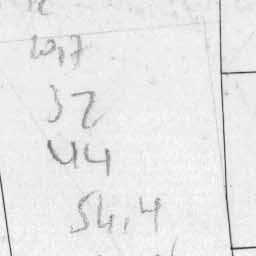 20,7
32
44
54,4